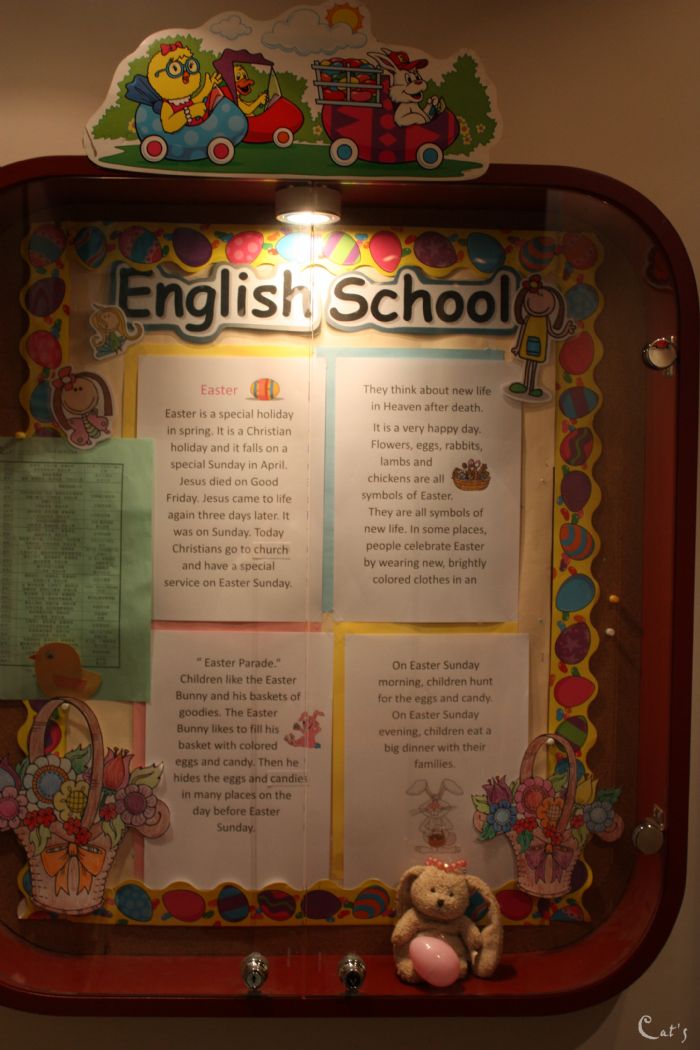 English School
Easter
Easter is a special holiday
in spring. It is a Christian
holiday and it falls on a
special Sunday in April.
Jesus died on Good
Friday. Jesus came to life
again three days later. It
was on Sunday. Today
Christians go to church
and have a special
service on Easter Sunday.
They think about new life
in Heaven after death.
It is a very happy day.
Flowers, eggs, rabbits,
lambs and
chickens are all
symbols of Easter.
They are all symbols of
new life. In some places,
people celebrate Easter
by wearing new, brightly
colored clothes in an
“ Easter Parade.”
Children like the Easter
Bunny and his baskets of
goodies. The Easter
Bunny likes to fill his
basket with colored
eggs and candy. Then he
hides the eggs and candies
in many places on the
day before Easter
Sunday.
On Easter Sunday
morning, children hunt
for the eggs and candy.
On Easter Sunday
evening, children eat a
big dinner with their
families.
Cat's